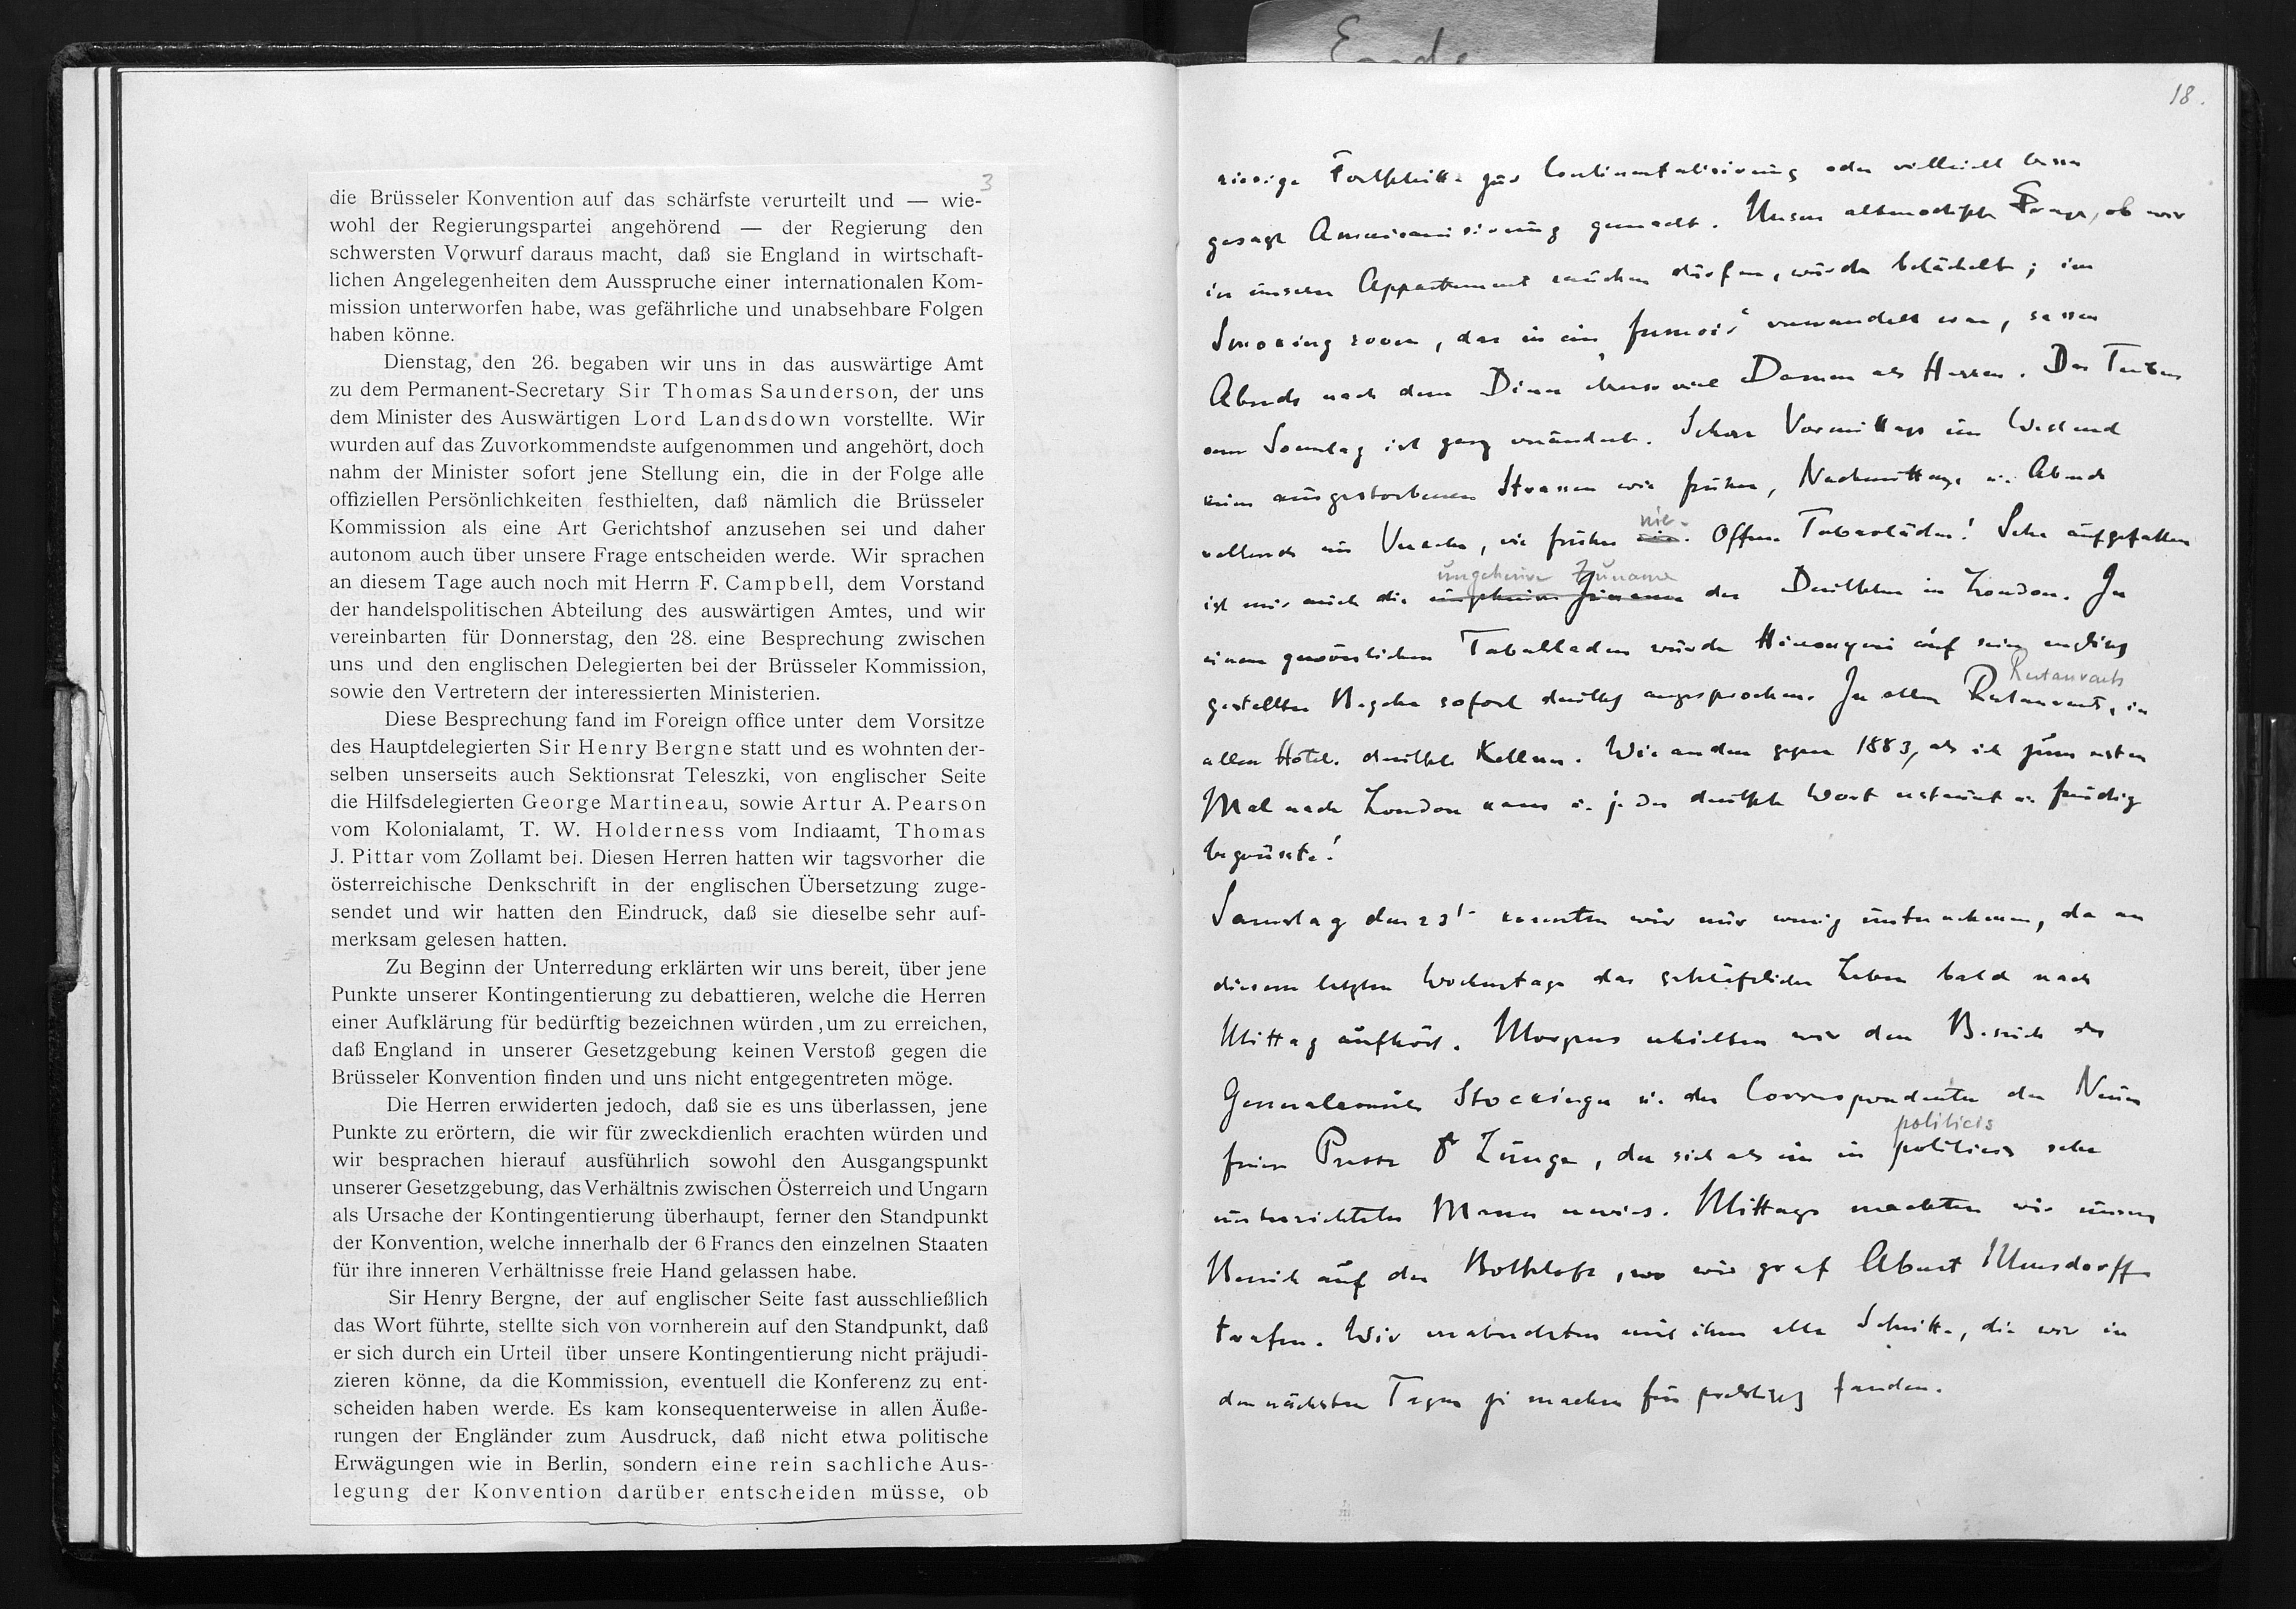 3
die Brüsseler Konvention auf das schärfste verurteilt und — wie-
wohl der Regierungspartei angehörend — der Regierung den
schwersten Vorwurf daraus macht, daß sie England in wirtschaft-
lichen Angelegenheiten dem Ausspruche einer internationalen Kom-
mission unterworfen habe, was gefährliche und unabsehbare Folgen
haben könne.
Dienstag, den 26. begaben wir uns in das auswärtige Amt
zu dem Permanent-Secretary Sir Thomas Saunderson, der uns
dem Minister des Auswärtigen Lord Landsdown vorstellte. Wir
wurden auf das Zuvorkommendste aufgenommen und angehört, doch
nahm der Minister sofort jene Stellung ein, die in der Folge alle
offiziellen Persönlichkeiten festhielten, daß nämlich die Brüsseler
Kommission als eine Art Gerichtshof anzusehen sei und daher
autonom auch über unsere Frage entscheiden werde. Wir sprachen
an diesem Tage auch noch mit Herrn F. Campbell, dem Vorstand
der handelspolitischen Abteilung des auswärtigen Amtes, und wir
vereinbarten für Donnerstag, den 28. eine Besprechung zwischen
uns und den englischen Delegierten bei der Brüsseler Kommission,
sowie den Vertretern der interessierten Ministerien.
Diese Besprechung fand im Foreign office unter dem Vorsitze
des Hauptdelegierten Sir Henry Bergne statt und es wohnten der-
selben unserseits auch Sektionsrat Teleszki, von englischer Seite
die Hilfsdelegierten George Martineau, sowie Artur A. Pearson
vom Kolonialamt, T. W. Holderness vom Indiaamt, Thomas
J. Pittar vom Zollamt bei. Diesen Herren hatten wir tagsvorher die
österreichische Denkschrift in der englischen Übersetzung zuge-
sendet und wir hatten den Eindruck, daß sie dieselbe sehr auf-
merksam gelesen hatten.
Zu Beginn der Unterredung erklärten wir uns bereit, über jene
Punkte unserer Kontingentierung zu debattieren, welche die Herren
einer Aufklärung für bedürftig bezeichnen würden, um zu erreichen,
daß England in unserer Gesetzgebung keinen Verstoß gegen die
Brüsseler Konvention finden und uns nicht entgegentreten möge.
Die Herren erwiderten jedoch, daß sie es uns überlassen, jene
Punkte zu erörtern, die wir für zweckdienlich erachten würden und
wir besprachen hierauf ausführlich sowohl den Ausgangspunkt
unserer Gesetzgebung, das Verhältnis zwischen Österreich und Ungarn
als Ursache der Kontingentierung überhaupt, ferner den Standpunkt
der Konvention, welche innerhalb der 6 Francs den einzelnen Staaten
für ihre inneren Verhältnisse freie Hand gelassen habe.
Sir Henry Bergne, der auf englischer Seite fast ausschließlich
das Wort führte, stellte sich von vornherein auf den Standpunkt, daß
er sich durch ein Urteil über unsere Kontingentierung nicht präjudi-
zieren könne, da die Kommission, eventuell die Konferenz zu ent-
scheiden haben werde. Es kam konsequenterweise in allen Äuße-
rungen der Engländer zum Ausdruck, daß nicht etwa politische
Erwägungen wie in Berlin, sondern eine rein sachliche Aus-
legung der Konvention darüber entscheiden müsse, ob
18.
riesige Fortschritte zur Continentalisirung oder vielleicht besser
gesagt Americanisirung gemacht. Unsere altmodische Frage, ob wir
in unserem Appartement rauchen dürfen, wurde belächelt; im
Smoking room, der in ein fumoir verwandelt war, sassen
Abends nach dem Diner ebenso viel Damen als Herren. Das Treiben
am Sonntag ist ganz verändert. Schon Vormittags im Westend
keine ausgestorbenen Strassen wie früher, Nachmittags u. Abends
vollends ein Verkehr, wie früher nie. Offene Tabakläden! Sehr aufgefallen
ist mir auch die ungeheure Zunahme der Deutschen in London. In
einem gewönlichen Tabakladen wurde Hieronymi auf sein englisch
gestelltes Begehr sofort deutsch angesprochen. In allen Restaurants, in
allen Hôtels deutsche Kellner. Wie anders gegen 1883, als ich zum ersten
Mal nach London kam u. jedes deutsche Wort erstaunt u. freudig
begrüsste!
Samstag den 23t. konnten wir nur wenig unternehmen, da an
diesem letzten Wochentage das geschäftliche Leben bald nach
Mittag aufhört. Morgens erhielten wir den Besuch des
Generalconsuls Stockinger u. des Correspondenten der Neuen
freien Presse Dr Zünger, der sich als ein in politicis sehr
unterrichteter Mann erwies. Mittags machten wir unsern
Besuch auf der Botschaft, wo wir Graf Albert Mensdorff
trafen. Wir verabredeten mit ihm alle Schritte, die wir in
den nächsten Tagen zu machen für zweckmässig fanden.